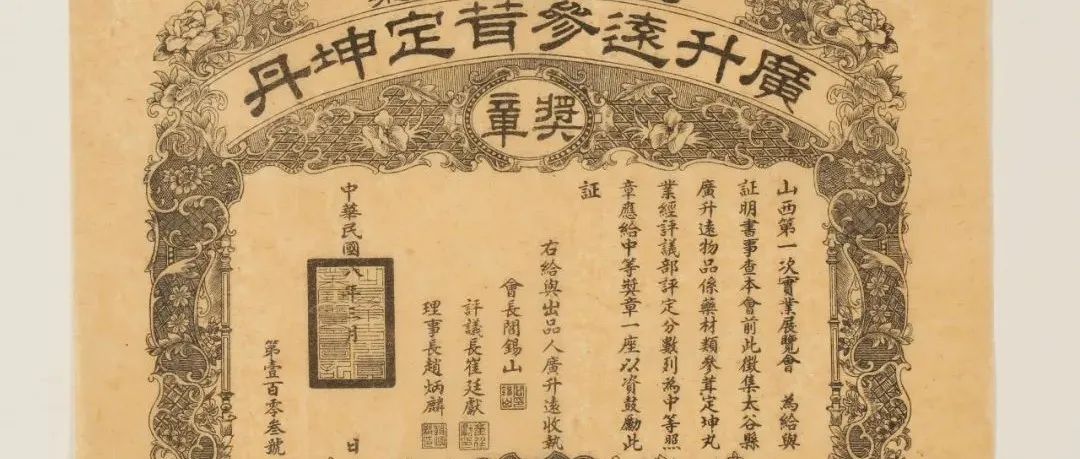 廣升遠參茸定坤丹
獎章
山西第一次實業展覽會 為給與
証明書事查本會前此徵集太谷縣
廣升遠物品係藥材類參茸定坤丸
業經評議部評定分數列為中等照
章應給中等獎章一座以資鼓勵此
証
右給與出品人廣升遠收執
會長閻錫山
評議長崔廷獻
理事長趙炳麟
中華民國八年三月 日
第壹百零叁號